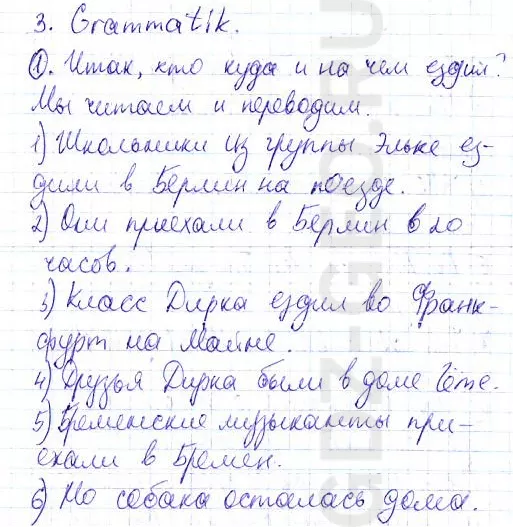 3. Grammatik.
①. Итак, кто куда и на чем ездил?
Мы читаем и переводим.
1) Школьники из группы Эльке ез-
дили в Берлин на поезде.
2) Они приехали в Берлин в 20
часов.
3) Класс Дирка ездил во Франк-
фурт на Майне.
4) Друзья Дирка были в доме Гёте.
5) Бременские музыканты при-
ехали в Бремен.
6) Но собака осталась дома.
GDZ-GEO.RU